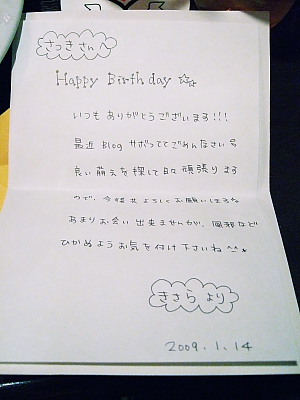 さつきさんへ
Happy Birthday ☆☆
いつもありがとうございまする!!!
最近Blogサボっててごめんなさい
良い萌えを探して日々頑張りまする
ので、今後共よろしくお願いしまする
あまりお会い出来ませんが、風邪など
ひかぬようお気を付け下さいね^-^*
ささらより
2009.1.14